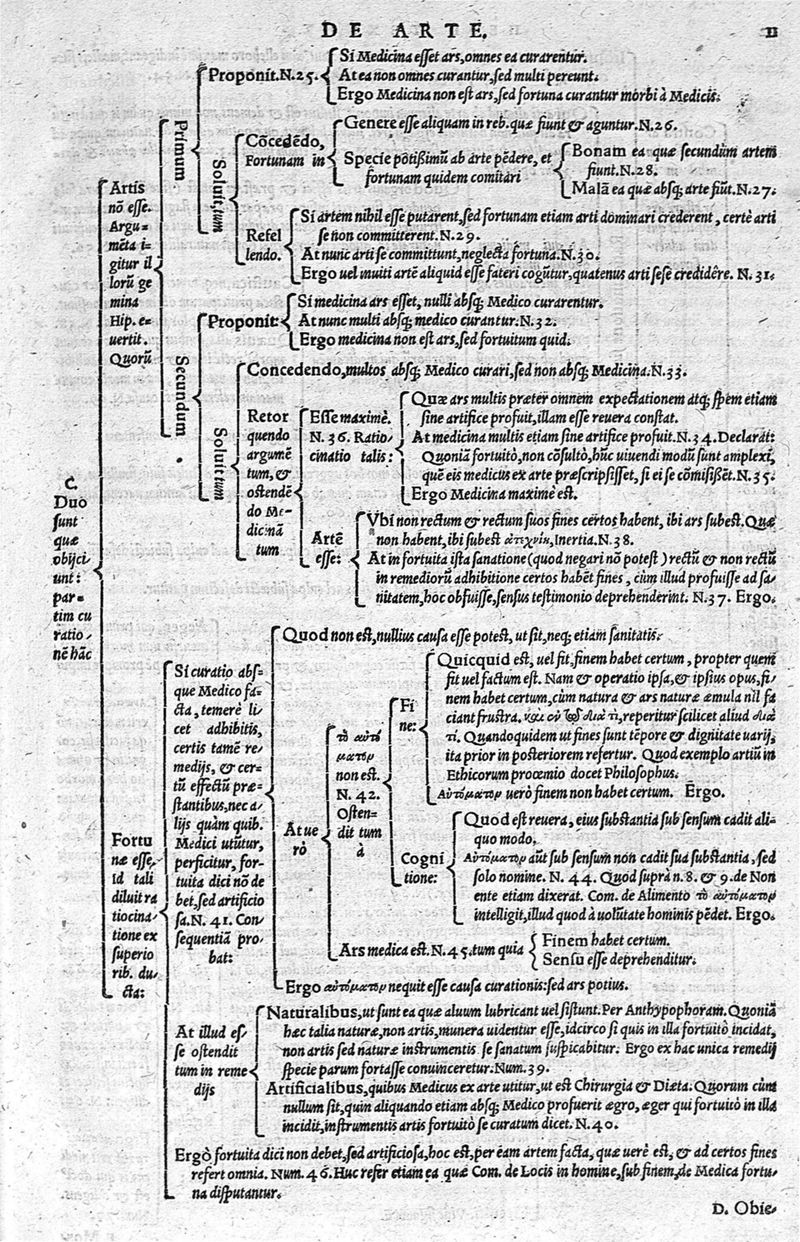 DE ARTE.
II
C.
Duo
sunt
quæ
obijci
unt:
par=
tim cu
ratio
nē hāc
Artis
nō esse.
Argu=
mēta i=
gitur il
lorū ge
mina
Hip. e=
uertit.
Quorū
Primum
Proponit. N. 25.
Si Medicina esset ars, omnes ea curarentur.
At ea non omnes curantur, sed multi pereunt.
Ergo Medicina non est ars, sed fortuna curantur morbi à Medicis.
Soluit, tum
Cōcedēdo,
Fortunam in
Genere esse aliquam in reb. quæ fiunt & aguntur. N. 26.
Specie pōtißimū ab arte pēdere, et
fortunam quidem comitari
Bonam ea quæ secundùm artem
fiunt. N. 28.
Malā ea quæ absq; arte fiūt. N. 27.
Refel
lendo.
Si artem nihil esse putarent, sed fortunam etiam arti dominari crederent, certè arti
se non committerent. N. 29.
At nunc arti se committunt, neglecta fortuna. N. 30.
Ergo uel inuiti artē aliquid esse fateri cogūtur, quatenus arti sese credidêre. N. 31.
Secundum
Proponit:
Si medicina ars esset, nulli absq; Medico curarentur.
At nunc multi absq; medico curantur. N. 32.
Ergo medicina non est ars, sed fortuitum quid.
Soluit tum
Concedendo, multos absq; Medico curari, sed non absq; Medicina. N. 33.
Retor
quendo
argumē
tum, &
ostendē
do Me=
dicinā
tum
Esse maximè.
N. 36. Ratio
cinatio talis:
Quæ ars multis præter omnem expectationem atq; spem etiam
sine artifice profuit, illam esse reuera constat.
At medicina multis etiam sine artifice profuit. N. 34. Declarat:
Quoniā fortuitò, non cōsultò, hūc uiuendi modū sunt amplexi,
quē eis medicus ex arte præscripsisset, si ei se cōmisißēt. N. 35.
Ergo Medicina maximè est.
Artē
esse:
Vbi non rectum & rectum suos fines certos habent, ibi ars subest. Quæ
non habent, ibi subest ἀτεχνίη, Inertia. N. 38.
At in fortuita ista sanatione (quod negari nō potest) rectū & non rectū
in remediorū adhibitione certos habēt fines, cùm illud profuisse ad sa=
nitatem, hoc obfuisse, sensus testimonio deprehenderint. N. 37. Ergo.
Fortu
næ esse,
id tali
diluit ra
tiocina=
tione ex
superio
rib. du=
cta:
Si curatio abs=
que Medico fa=
cta, temerè li=
cet adhibitis,
certis tamē re=
medijs, & cer=
tū effectū præ=
stantibus, nec a=
lijs quàm quib.
Medici utūtur,
perficitur, for=
tuita dici nō de
bet, sed artificio
sa. N. 41. Con=
sequentiā pro=
bat:
Quod non est, nullius causa esse potest, ut sit, neq; etiam sanitatis.
At ue
rò
τὸ αὐτό
ματον
non est.
N. 42.
Osten=
dit tum
à
Fi
ne:
Quicquid est, uel fit, finem habet certum, propter quem
fit uel factum est. Nam & operatio ipsa, & ipsius opus, fi=
nem habet certum, cùm natura & ars naturæ æmula nil fa
ciant frustra. reperitur scilicet aliud διά
τί. Quandoquidem ut fines sunt tēpore & dignitate uarij,
ita prior in posteriorem refertur. Quod exemplo artiū in
Ethicorum procemio docet Philosophus.
Αὐτόματον uerò finem non habet certum. Ergo.
Cogni
tione:
Quod est reuera, eius substantia sub sensum cadit ali=
quo modo.
Αὐτόματον aūt sub sensum non cadit sua substantia, sed
solo nomine. N. 44. Quod suprà n. 8. & 9. de Non
ente etiam dixerat. Com. de Alimento τὸ αὐτόματον
intelligit, illud quod à uolūtate hominis pēdet. Ergo.
Ars medica est. N. 45. tum quia
Finem habet certum.
Sensu esse deprehenditur.
Ergo αὐτόματον nequit esse causa curationis: sed ars potius.
At illud es=
se ostendit
tum in reme
dijs
Naturalibus, ut sunt ea quæ aluum lubricant uel sistunt. Per Anthypophoram. Quoniā
hæc talia naturæ, non artis, munera uidentur esse, idcirco si quis in illa fortuitò incidat,
non artis sed naturæ instrumentis se sanatum suspicabitur. Ergo ex hac unica remedij
specie parum fortasse conuinceretur. Num. 39.
Artificialibus, quibus Medicus ex arte utitur, ut est Chirurgia & Diæta. Quorum cùm
nullum sit, quin aliquando etiam absq; Medico profuerit ægro, æger qui fortuitò in illa
incidit, instrumentis artis fortuitò se curatum dicet. N. 40.
Ergò fortuita dici non debet, sed artificiosa, hoc est, per eam artem facta, quæ uerè est, & ad certos fines
refert omnia. Num. 46. Huc refer etiam ea quæ Com. de Locis in homine, sub finem, de Medica fortu=
na disputantur.
D. Obie=